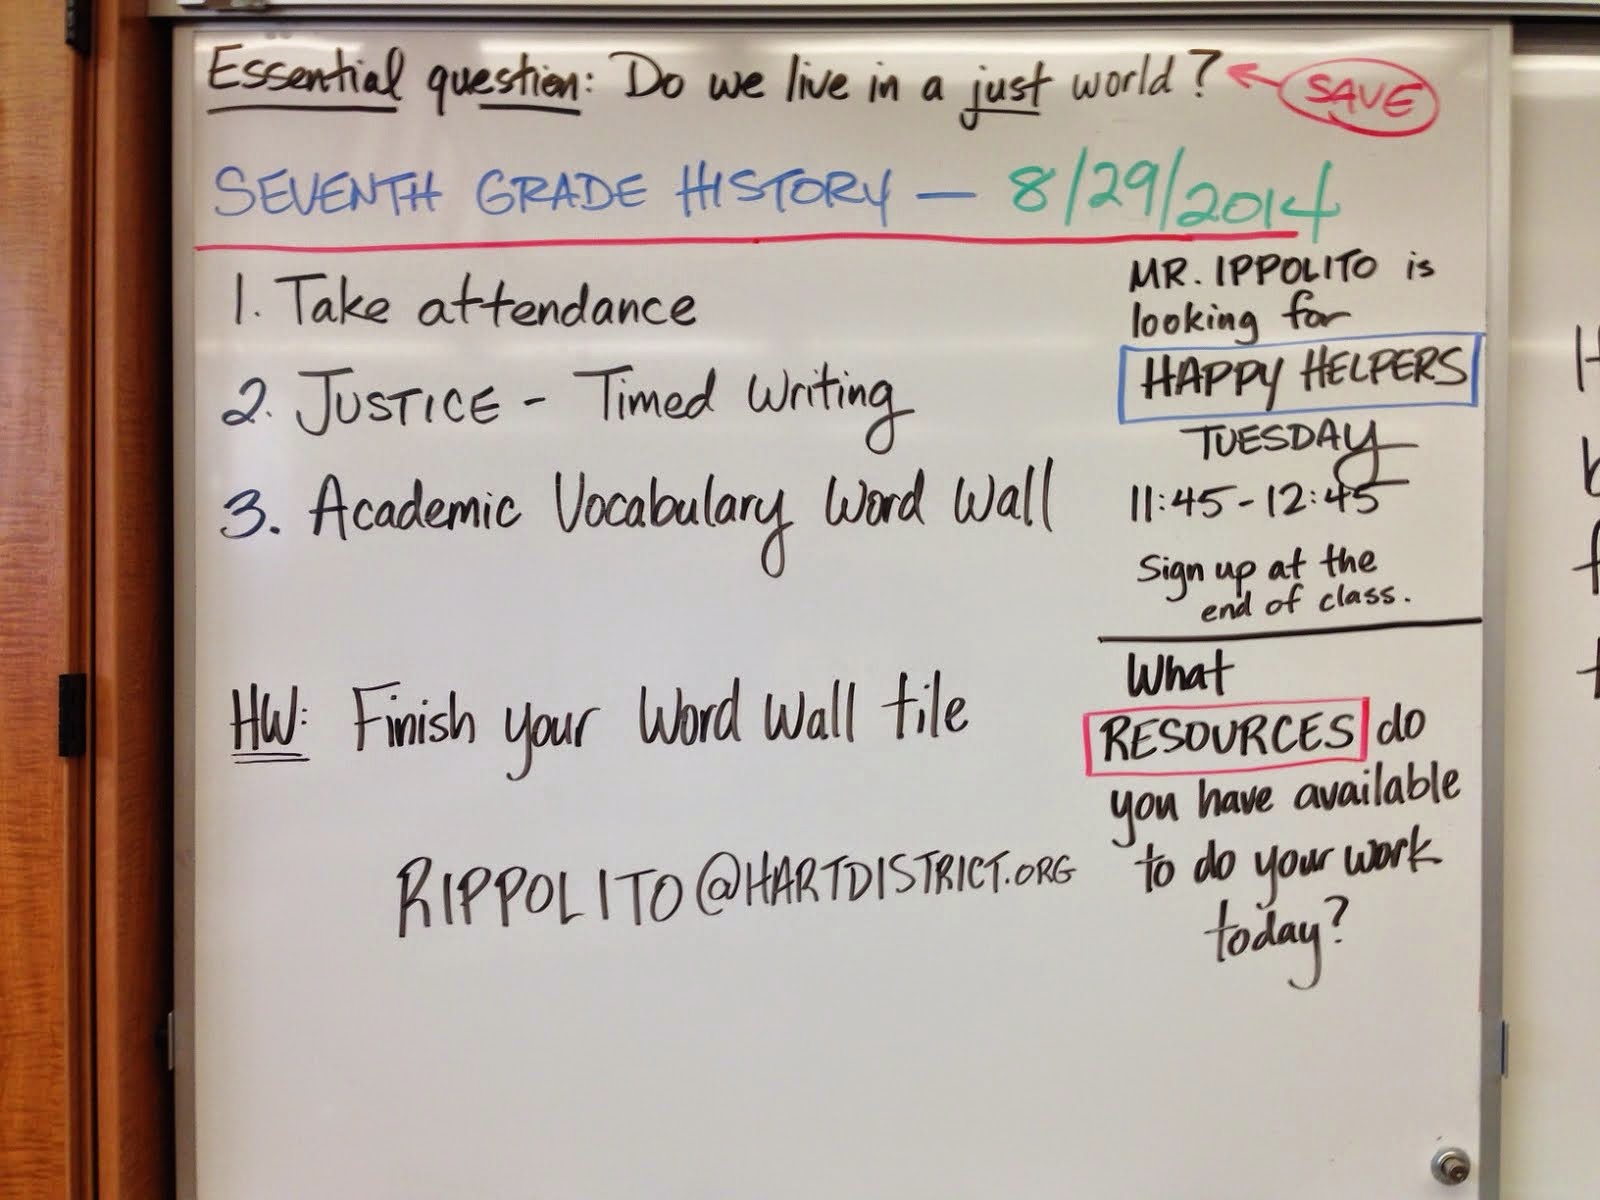 Essential question: Do we live in a just world? SAVE
SEVENTH GRADE HISTORY — 8/29/2014
1. Take attendance
2. JUSTICE - Timed Writing
3. Academic Vocabulary Word Wall
HW: Finish your Word Wall tile
RIPPOLITO@HARTDISTRICT.ORG
MR. IPPOLITO is
looking for
HAPPY HELPERS
TUESDAY
11:45-12:45
Sign up at the
end of class.
What
RESOURCES do
you have available
to do your work
today?